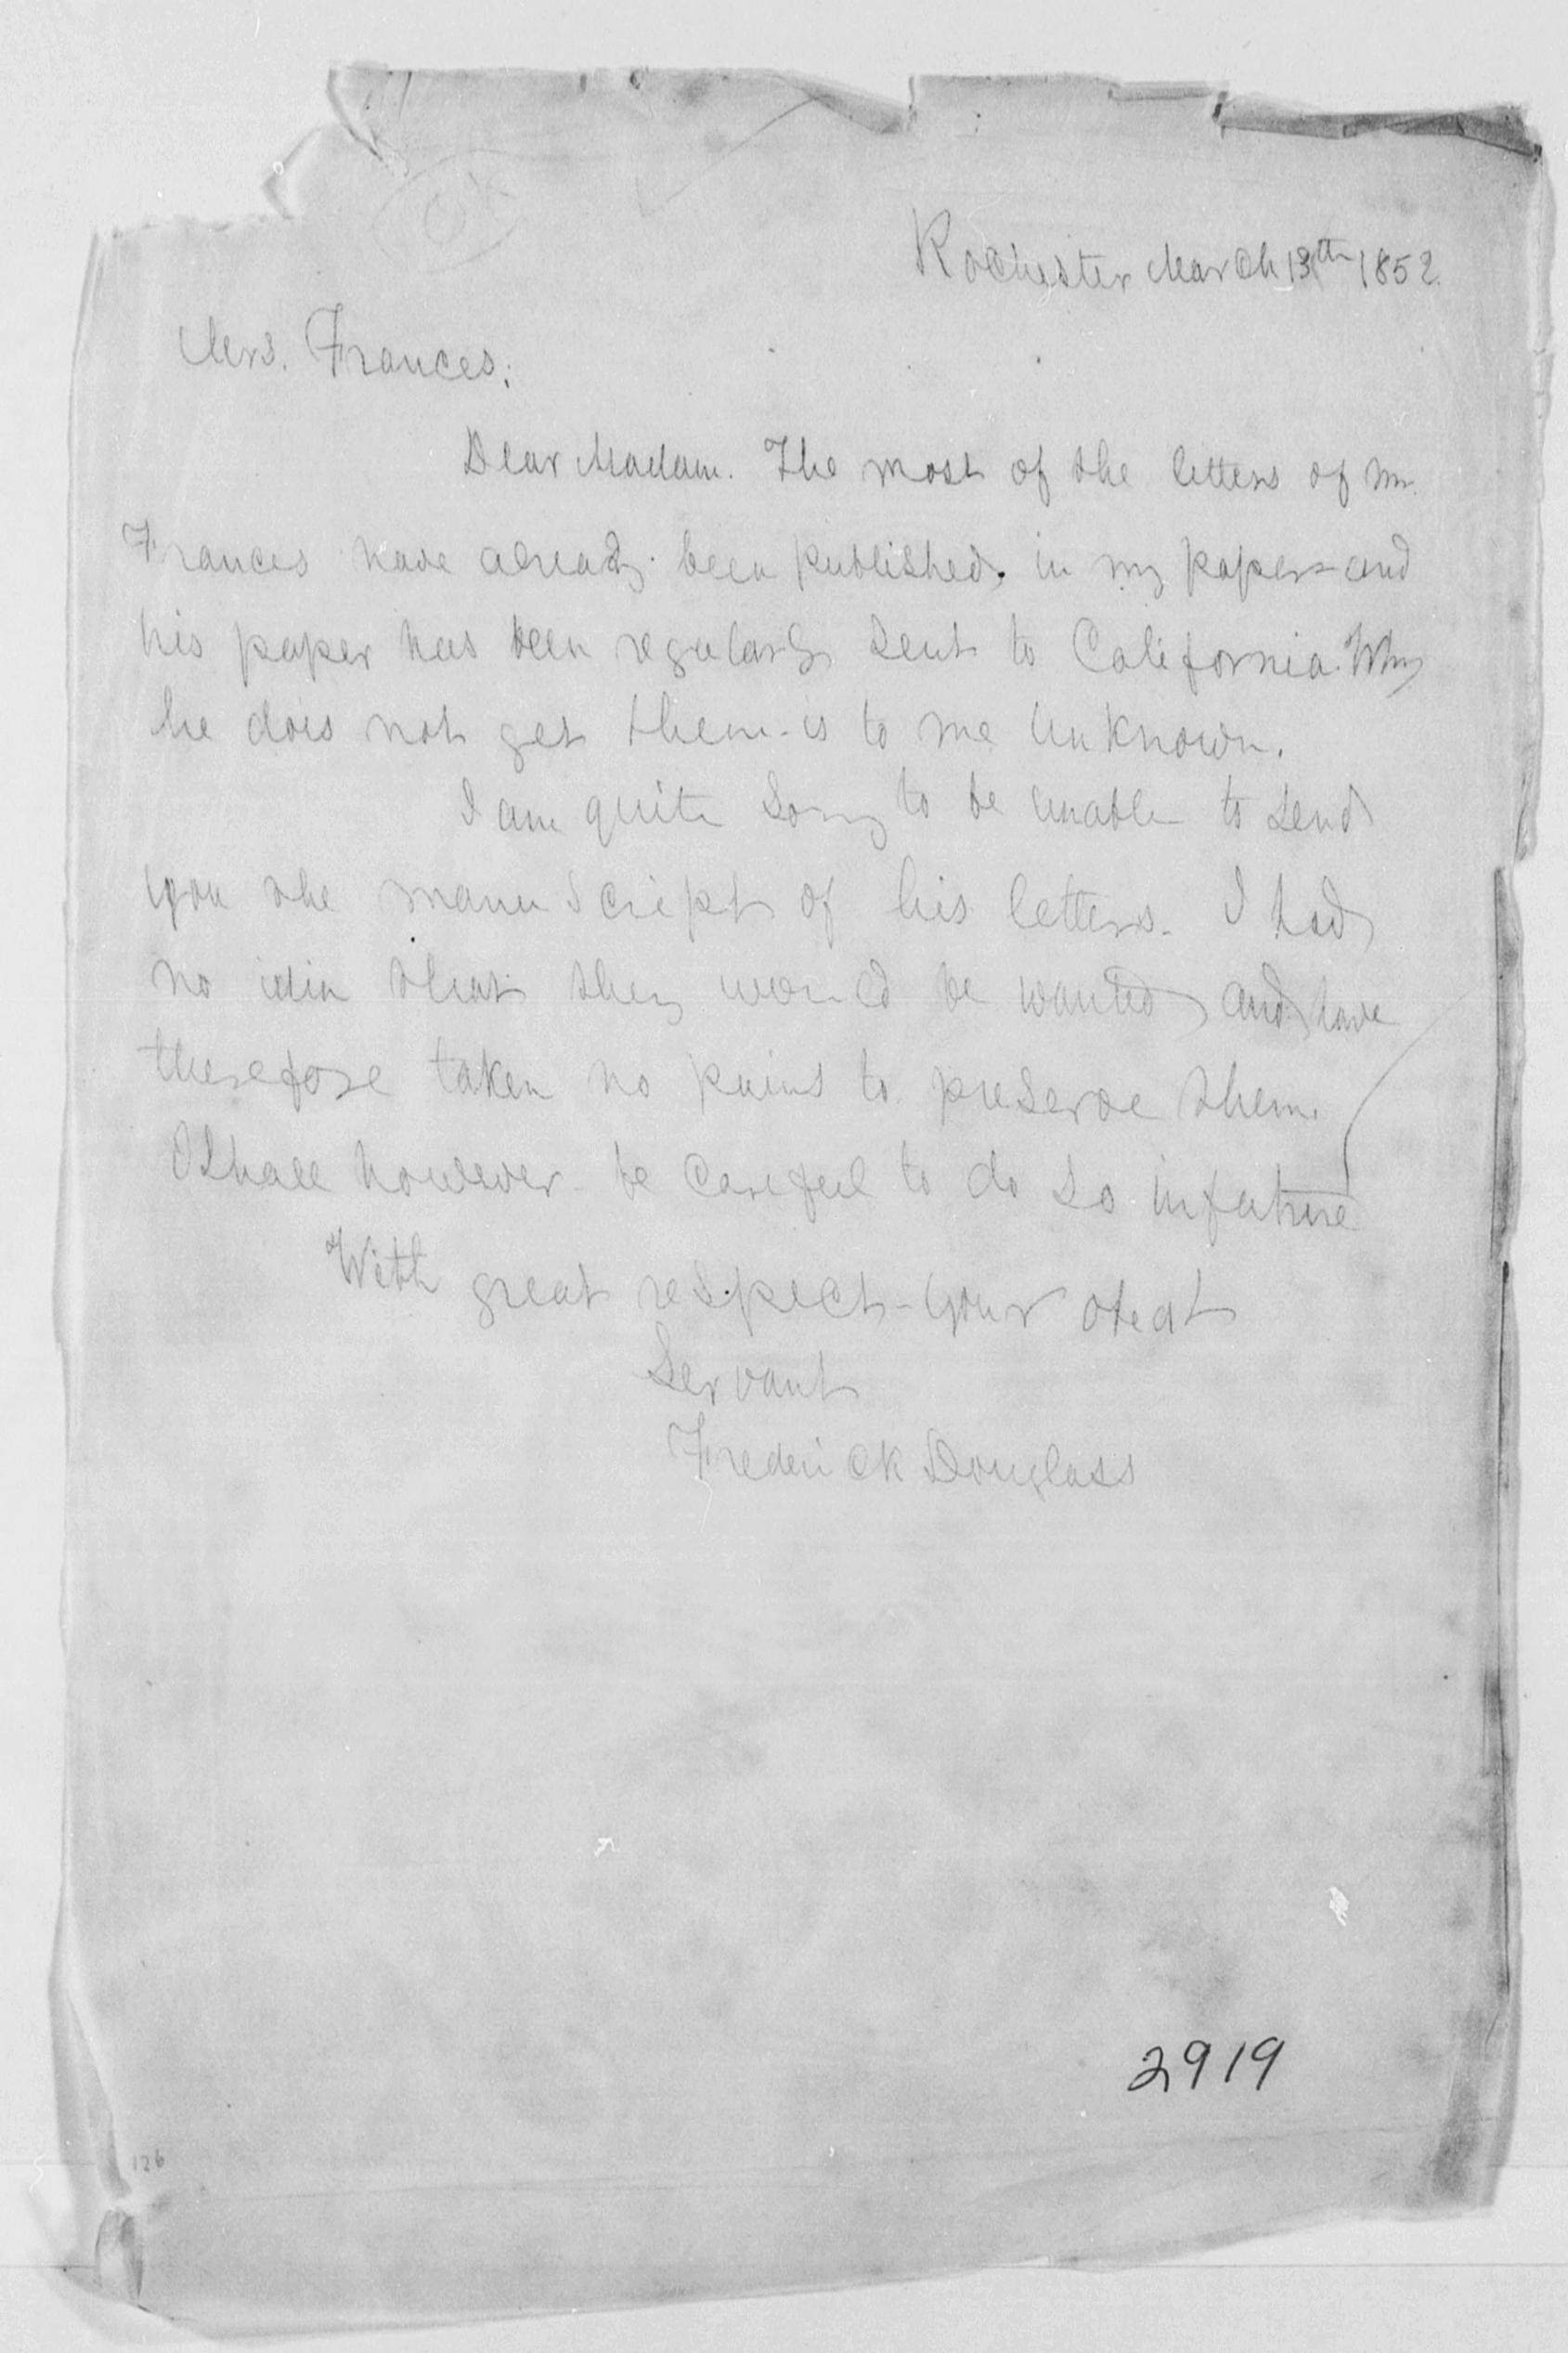 OK
Rochester March 13th 1852.
Mrs. Frances;
Dear Madam. The most of the letters of Mr.
Frances have already been published. in my paper and
his paper has been regularly sent to California. Why
he does not get them - is to me unknown.
I am quite sorry to be unable to send
you the manuscript of his letters. I had
no idea that they would be wanted and have
therefore taken no pains to preserve them.
I shall however - be careful to do so in future
With great respect - your obedt
Servant
Frederick Douglass
2919
126